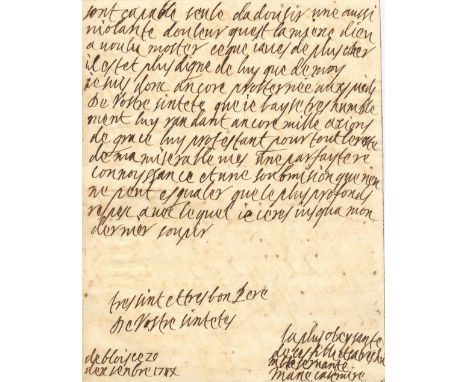 sont capable seule dadousir une aussi
violante douleur quest la mene dieu
a voulu moster ce que iaves de plus cher
il estet plus digne de luy que de moy
ie suis donc ancore prosternee aux pieds
de Vostre sintete que ie bayse tres humble
ment luy randant ancore mille axions
de grace luy protestant pour tout le reste
de ma miserable vies une parfaiste re
connoissance et une soubmision que rien
ne peut esgualer que le plus profonds
respec avec lequel ie seres iusqua mon
dernier soupir
tres sint et tres bon Pere
de Vostre sintetes
de blois ce 20
dexsenbre 171
la plus obeysante
servante
Marie casimire